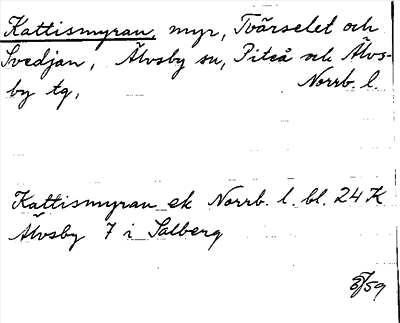 Kattismyran, myr, Tvärselet och
Svedjan, Älvsby sn, Piteå och Älvs-
by tg, Norrb. l.
Kattismyran ek Norrb. l. bl. 24 K
Älvsby 7 i Salberg
59